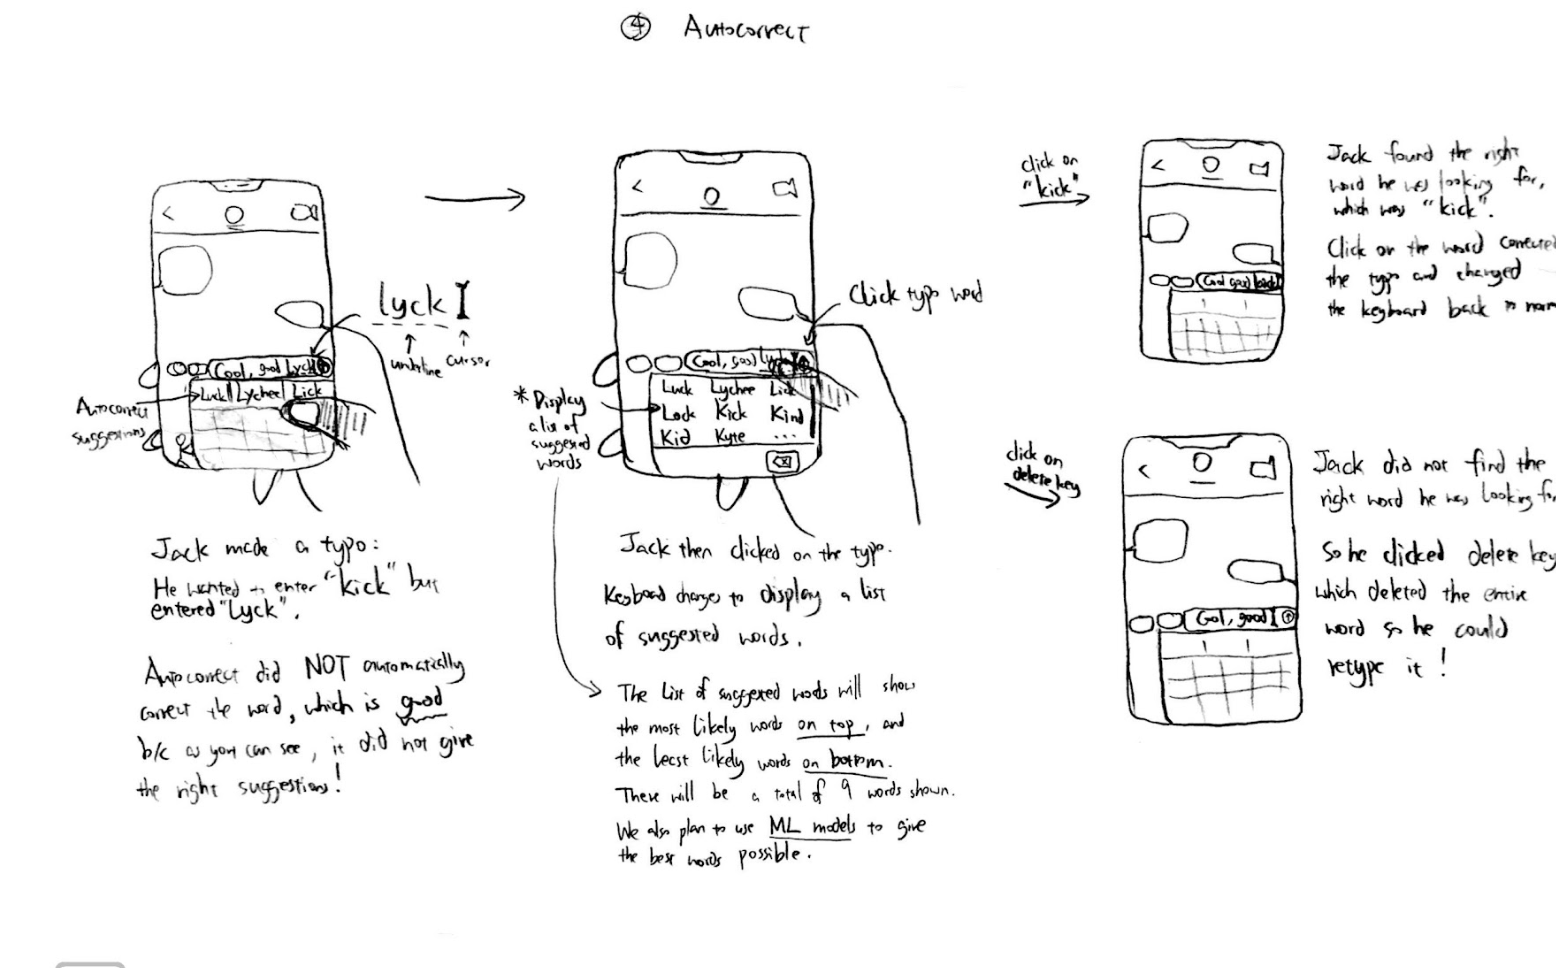 ④ Autocorrect
lyck
underline
cursor
Cool, good Lyck
Luck Lychee Lick
Autocorrect
suggestions
Jack made a typo:
He wanted to enter "kick" but
entered "Lyck".
Autocorrect did NOT automatically
correct the word, which is good
b/c as you can see, it did not give
the right suggestions!
Click typo word
Cool, good
Luck Lychee Lick
Lock Kick Kind
Kid Kyte ...
* Display
a list of
suggested
words
Jack then clicked on the type.
Keyboard changes to display a list
of suggested words.
The list of suggested words will show
the most likely words on top, and
the least likely words on bottom.
There will be a total of 9 words shown.
We also plan to use ML models to give
the best words possible.
click on
"kick"
Cool good kick
Jack found the right
word he was looking for,
which was "kick".
Click on the word corrected
the typo and changed
the keyboard back to norm
click on
delete key
Cool, good
Jack did not find the
right word he was looking fo
So he clicked delete key
which deleted the entire
word so he could
retype it!